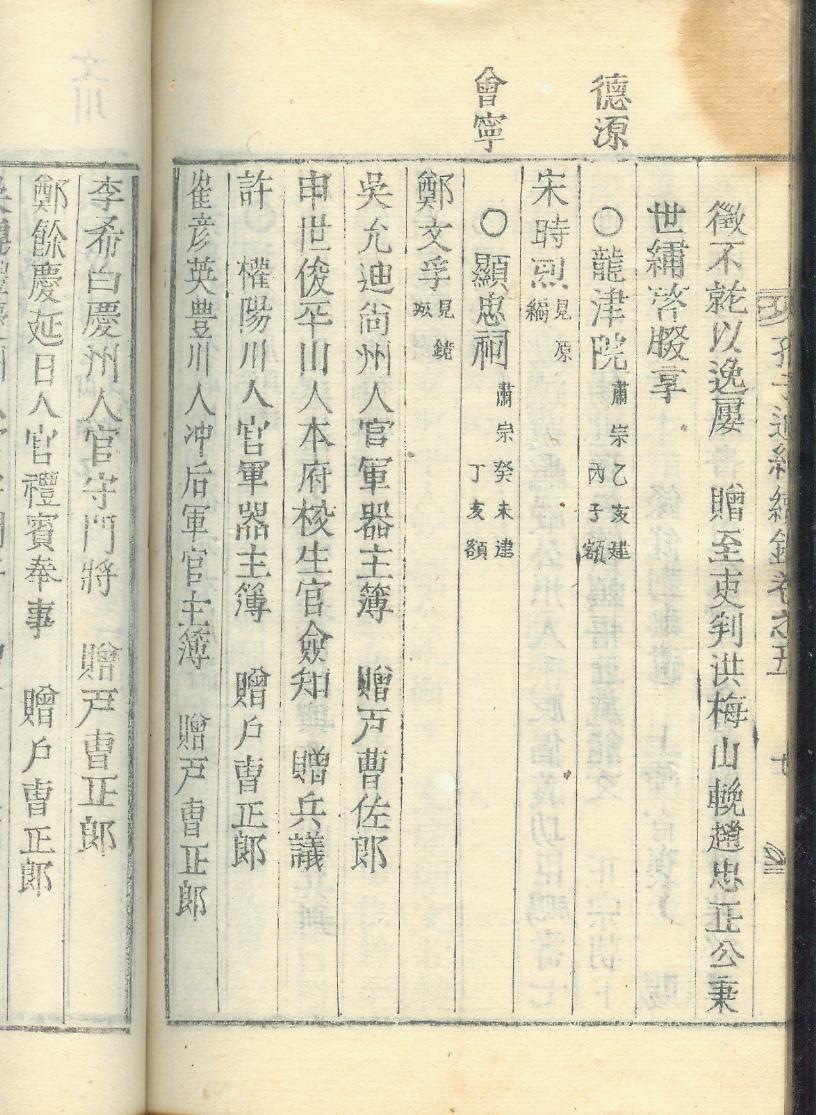 孔子通紀續錄卷之五
七
徵不就以逸屢 贈至吏判洪梅山輓趙忠正公秉
世繡啓腏享
德源
○龍津院 肅宗乙亥建 丙子額
宋時烈 見原編
會寧
○顯忠祠 肅宗癸未建 丁亥額
鄭文孚 見鏡城
吳允迪尙州人官軍器主簿 贈戶曹佐郎
申世俊平山人本府校生官僉知 贈兵議
許 權陽川人官軍器主簿 贈戶曹正郎
崔彦英豊川人冲后軍官主簿 贈戶曹正郎
李希白慶州人官守門將 贈戶曹正郎
鄭餘慶延日人官禮賓奉事 贈戶曹正郎